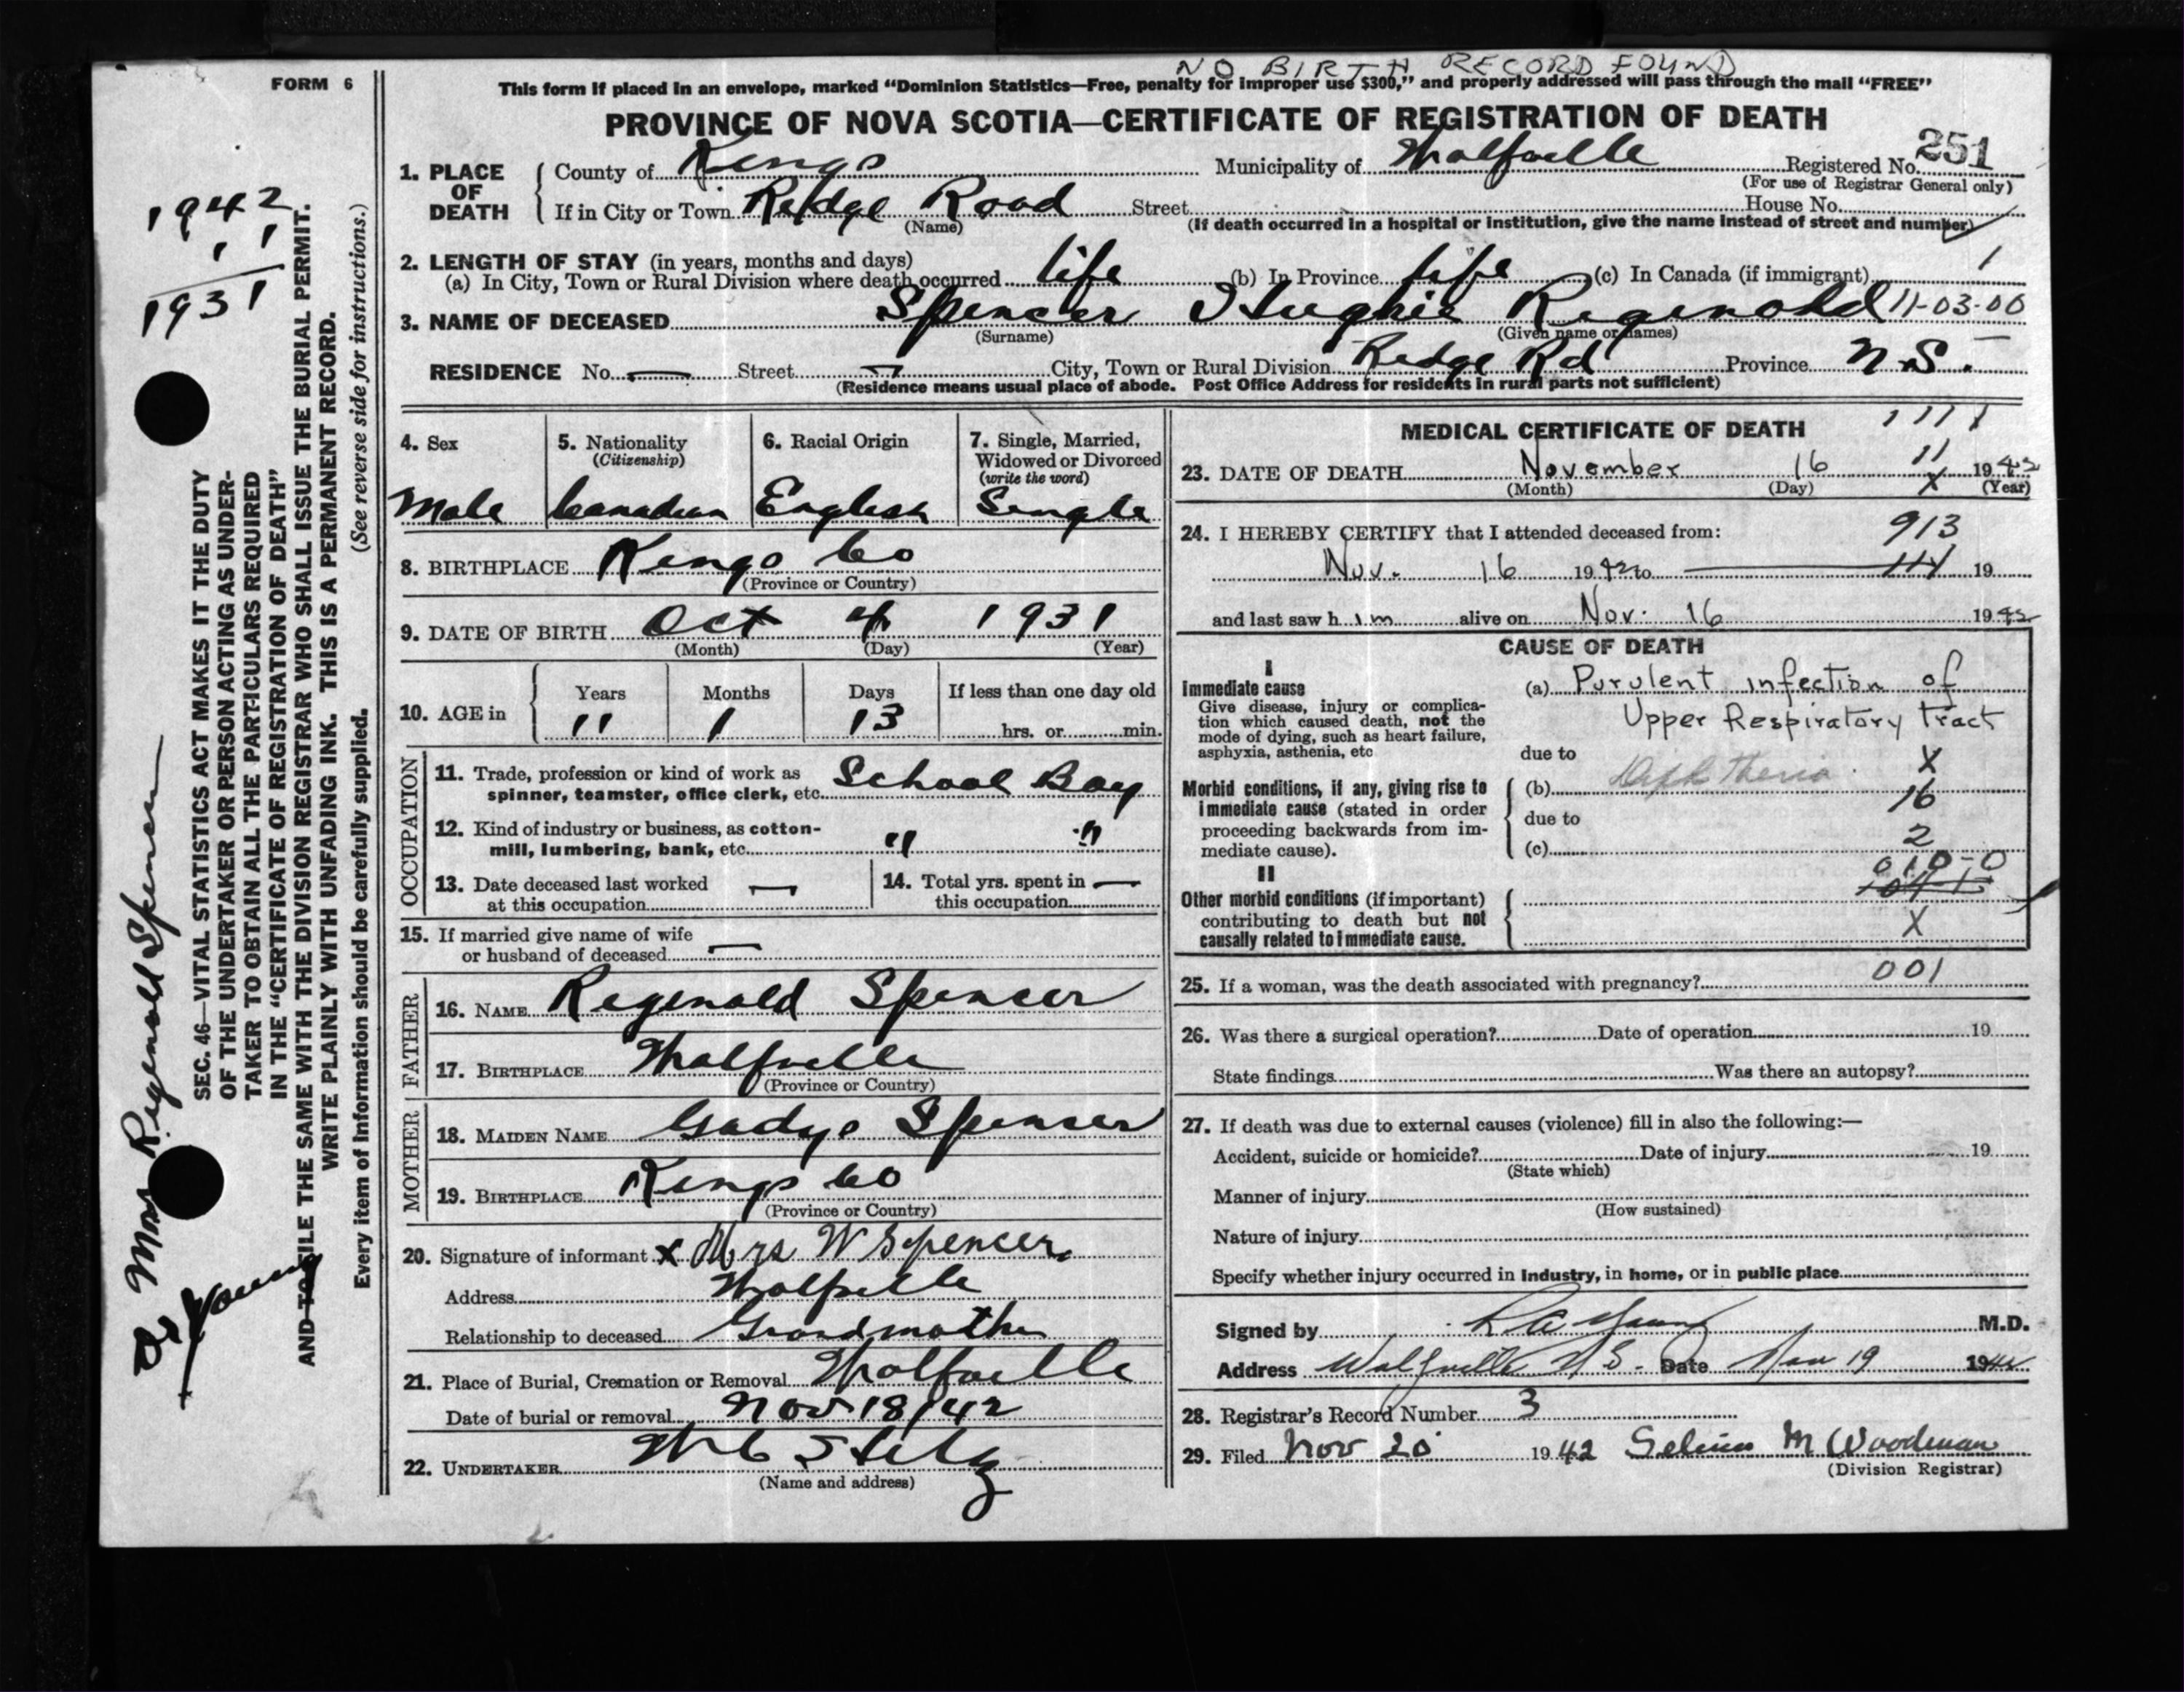 NO BIRTH RECORD FOUND
FORM 6
This form if placed in an envelope, marked “Dominion Statistics—Free, penalty for improper use $300,” and properly addressed will pass through the mail “FREE”
PROVINCE OF NOVA SCOTIA—CERTIFICATE OF REGISTRATION OF DEATH
1. PLACE OF DEATH County of Kings Municipality of Wolfville Registered No. 251
(For use of Registrar General only)
If in City or Town Ridge Road Street House No.
(Name) (If death occurred in a hospital or institution, give the name instead of street and number)
2. LENGTH OF STAY (in years, months and days)
(a) In City, Town or Rural Division where death occurred life (b) In Province life (c) In Canada (if immigrant) 1
3. NAME OF DECEASED Spencer Hughie Reginold 11-03-00
(Surname) (Given name or names)
RESIDENCE No. — Street — City, Town or Rural Division Ridge Rd Province N.S.
(Residence means usual place of abode. Post Office Address for residents in rural parts not sufficient)
4. Sex 5. Nationality (Citizenship) 6. Racial Origin 7. Single, Married, Widowed or Divorced (write the word)
Male Canadian English Single
8. BIRTHPLACE Kings Co
(Province or Country)
9. DATE OF BIRTH Oct 4 1931
(Month) (Day) (Year)
10. AGE in Years Months Days If less than one day old
11 1 13 hrs. or min.
OCCUPATION
11. Trade, profession or kind of work as School Boy
spinner, teamster, office clerk, etc.
12. Kind of industry or business, as cotton-
mill, lumbering, bank, etc. " "
13. Date deceased last worked at this occupation — 14. Total yrs. spent in this occupation —
15. If married give name of wife
or husband of deceased —
FATHER
16. NAME Reginald Spencer
17. BIRTHPLACE Wolfville
(Province or Country)
MOTHER
18. MAIDEN NAME Gladys Spencer
19. BIRTHPLACE Kings Co
(Province or Country)
20. Signature of informant x Mrs W Spencer
Address Wolfville
Relationship to deceased Grandmother
21. Place of Burial, Cremation or Removal Wolfville
Date of burial or removal Nov 18/42
22. UNDERTAKER
(Name and address)
MEDICAL CERTIFICATE OF DEATH
1 1 1 1
11
23. DATE OF DEATH November 16 1942
(Month) (Day) X (Year)
24. I HEREBY CERTIFY that I attended deceased from: 913
Nov. 16 1942 to — 19
and last saw him alive on Nov. 16 1942
CAUSE OF DEATH
I
Immediate cause
Give disease, injury or complica-
tion which caused death, not the
mode of dying, such as heart failure,
asphyxia, asthenia, etc
(a) Purulent infection of
Upper Respiratory Tract
due to X
Morbid conditions, if any, giving rise to
immediate cause (stated in order
proceeding backwards from im-
mediate cause).
(b) Diphtheria.
16
due to
2
(c)
010-0
II
Other morbid conditions (if important)
contributing to death but not
causally related to immediate cause.
X
001
25. If a woman, was the death associated with pregnancy?
26. Was there a surgical operation? Date of operation 19
State findings Was there an autopsy?
27. If death was due to external causes (violence) fill in also the following:—
Accident, suicide or homicide? Date of injury 19
(State which)
Manner of injury
(How sustained)
Nature of injury
Specify whether injury occurred in industry, in home, or in public place
Signed by M.D.
Address Wolfville N.S. Date Nov 19 1942
28. Registrar's Record Number 3
29. Filed Nov 20 1942 M Woodman
(Division Registrar)
1942
1 1
1931
Mrs Regenold Spencer
Dr Young
SEC. 46—VITAL STATISTICS ACT MAKES IT THE DUTY
OF THE UNDERTAKER OR PERSON ACTING AS UNDER-
TAKER TO OBTAIN ALL THE PARTICULARS REQUIRED
IN THE “CERTIFICATE OF REGISTRATION OF DEATH”
AND TO FILE THE SAME WITH THE DIVISION REGISTRAR WHO SHALL ISSUE THE BURIAL PERMIT.
WRITE PLAINLY WITH UNFADING INK. THIS IS A PERMANENT RECORD.
Every item of information should be carefully supplied. (See reverse side for instructions.)